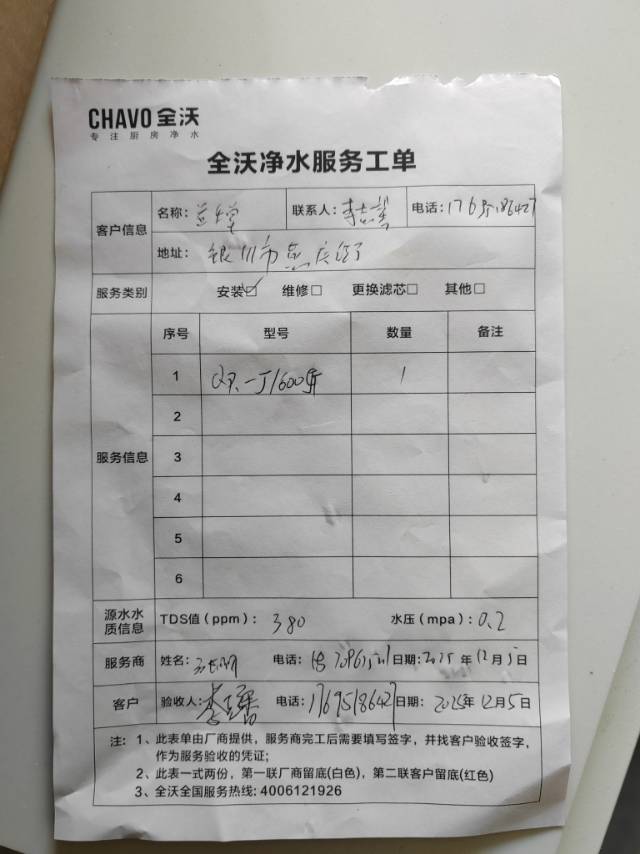 CHAVO 全沃
专注厨房净水
全沃净水服务工单
客户信息 名称: 联系人: 李 电话:
地址: 银川市
服务类别 安装☑ 维修□ 更换滤芯□ 其他□
服务信息 序号 型号 数量 备注
1 1
2
3
4
5
6
源水水质信息 TDS值(ppm): 380 水压(mpa): 0.2
服务商 姓名: 电话: 日期: 2025年12月5日
客户 验收人: 李 电话: 17695186427 日期: 2025年12月5日
注: 1、此表单由厂商提供，服务商完工后需要填写签字，并找客户验收签字，
作为服务验收的凭证;
2、此表一式两份，第一联厂商留底(白色)，第二联客户留底(红色)
3、全沃全国服务热线: 4006121926